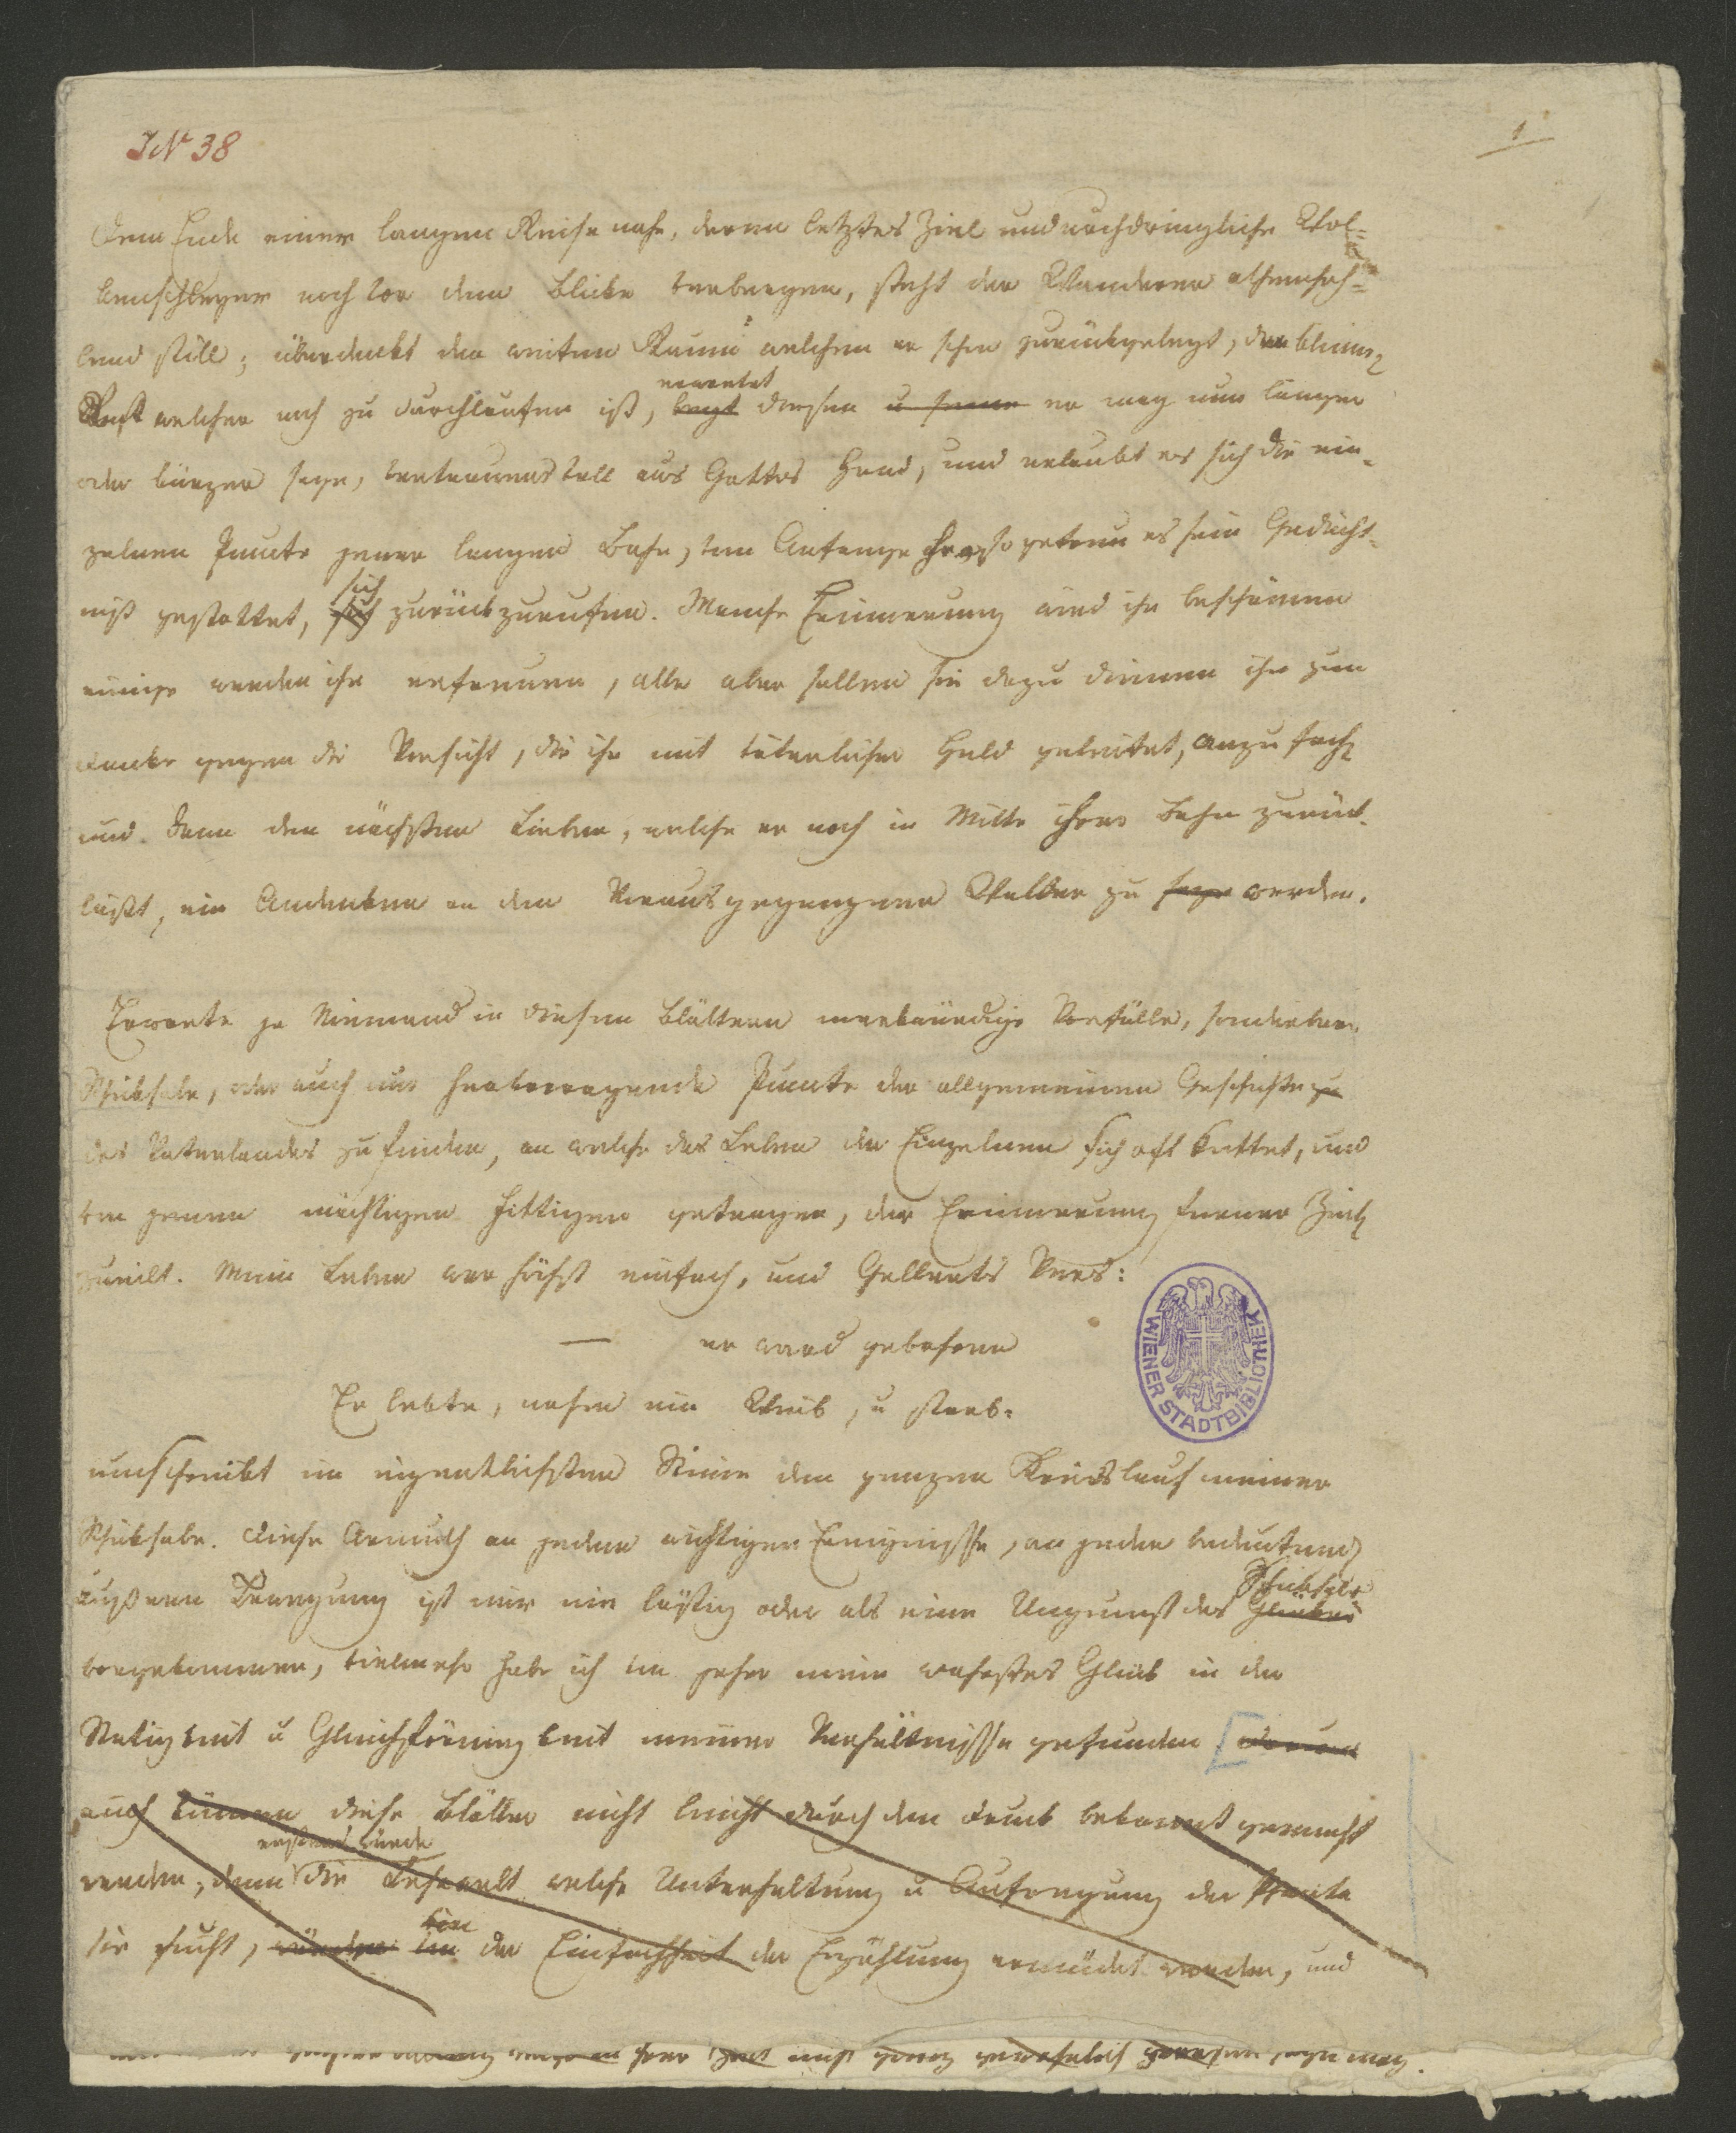 JN 38
1
Dem Ende einer langen Reise nahe, deren letztes Ziel undurchdringliche Wol-
kenschleyer noch vor dem Blicke verbergen, steht der Wanderer athemhoh-
lend still; überdenkt den weiten Raum welchen er schon zurückgelegt, den kleinen
Rest welcher noch zu durchlaufen ist, erwartet diesen er mag nun länger
oder kürzer seyn, vertrauensvoll aus Gottes Hand, und erlaubt es sich die ein-
zelnen Puncte jener langen Bahn, vom Anfange her, so getreu es sein Gedächt-
niß gestattet, sich zurückzurufen. Manche Erinnerung wird ihn beschämen
einige werden ihn erfreuen, alle aber sollen sie dazu dienen ihn zum
Danke gegen die Vorsicht, die ihn mit väterlicher Huld geleitet, anzufachen
und dann den nächsten Lieben, welche er noch in Mitte ihrer Bahn zurück-
läßt, ein Andenken an den Vorausgegangenen Waller zu seyn werden.
Erwarte ja Niemand in diesen Blättern merkwürdige Vorfälle, sonderbare
Schicksale, oder auch nur hervorragende Puncte der allgemeinen Geschichte zu
des Vaterlandes zu finden, an welche das Leben der Einzelnen sich oft kettet, und
von jenen mächtigen Fittigen getragen, der Erinnerung ferner Zeiten
zueilt. Mein Leben war höchst einfach, und Gellerts Vers:
— er ward gebohren
Er lebte, nahm ein Weib, u starb.
WIENER STADTBIBLIOTHEK
umschreibt im eigentlichsten Sinne den ganzen Kreislauf meiner
Schicksale. Diese Armuth an jedem wichtigen Ereignisse, an jeder bedeutenden
äußeren Bewegung ist mir nie lästig oder als eine Ungunst des Glückes
Schicksals
vorgekommen, vielmehr habe ich von jeher mein wahrstes Glück in der
Stetigkeit u Gleichförmigkeit meiner Verhältnisse gefunden
auch können diese Blätter nicht leicht durch den Druck bekannt gemacht
werden, denn die Lesewelt welche Unterhaltung u Aufregung der
erstens würde
sie sucht, würden von der Einfachheit der Erzählung ermüdet werden, und
nicht ganz seyn mag.